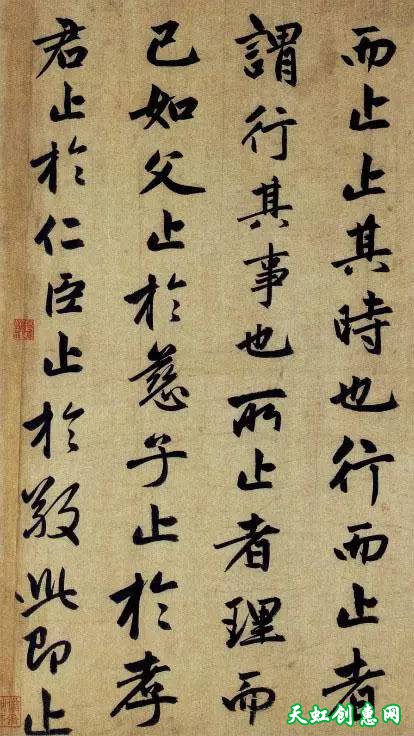 而止止其時也行而止者
謂行其事也所止者理而
已如父止於慈子止於孝
君止於仁臣止於敬此即止
天虹创惠网